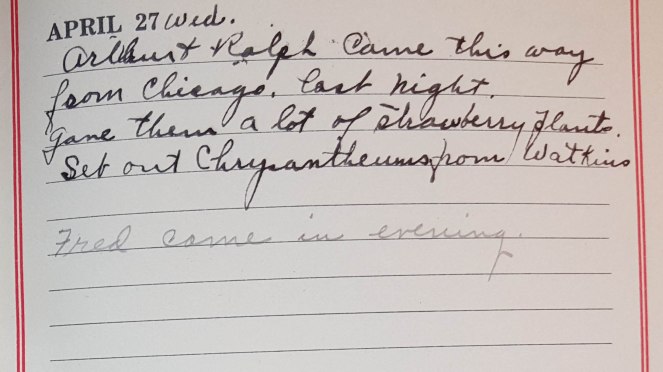 APRIL 27 Wed.
Arthur & Ralph Came this way
from Chicago, last night.
Gave them a lot of strawberry plants.
Set out Chrysantheums from Watkins
Fred came in evening.